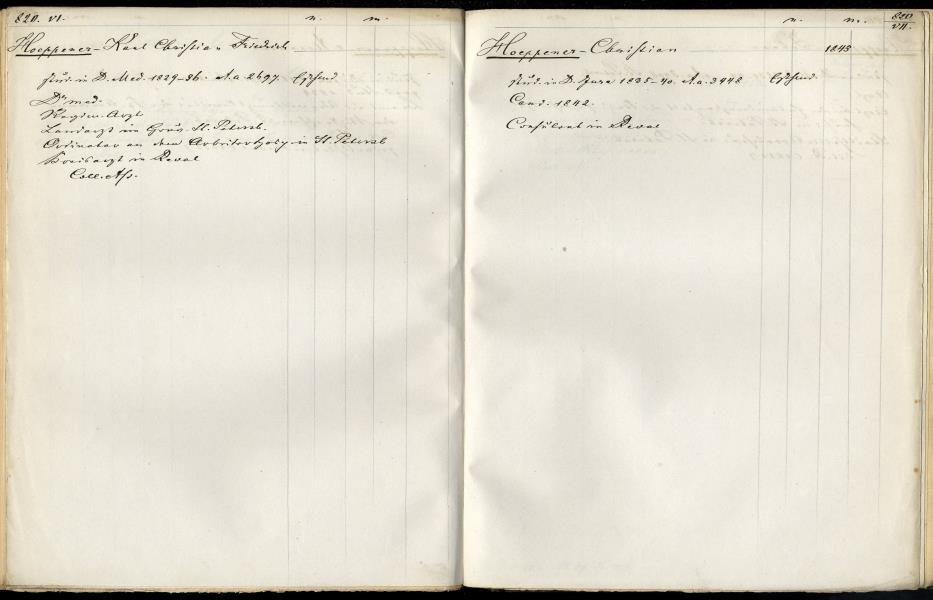 820. VI. n. m.
Hoeppener - Karl Christian Friedrich
stud. in D. Med. 1829-36. A.a. 2697. Ehstland
Dr med.
Regim. Arzt
Landarzt im Gouv. St. Petersb.
Ordinator an dem Arbeiterhosp. in St. Petersb
Kreisarzt in Reval
Coll. Ass.
n. m. 820 VII.
Hoeppener - Christian 1843
stud. in D. Jura 1835-40. A.a. 3448 Ehstland.
Cand. 1842.
Consulent in Reval